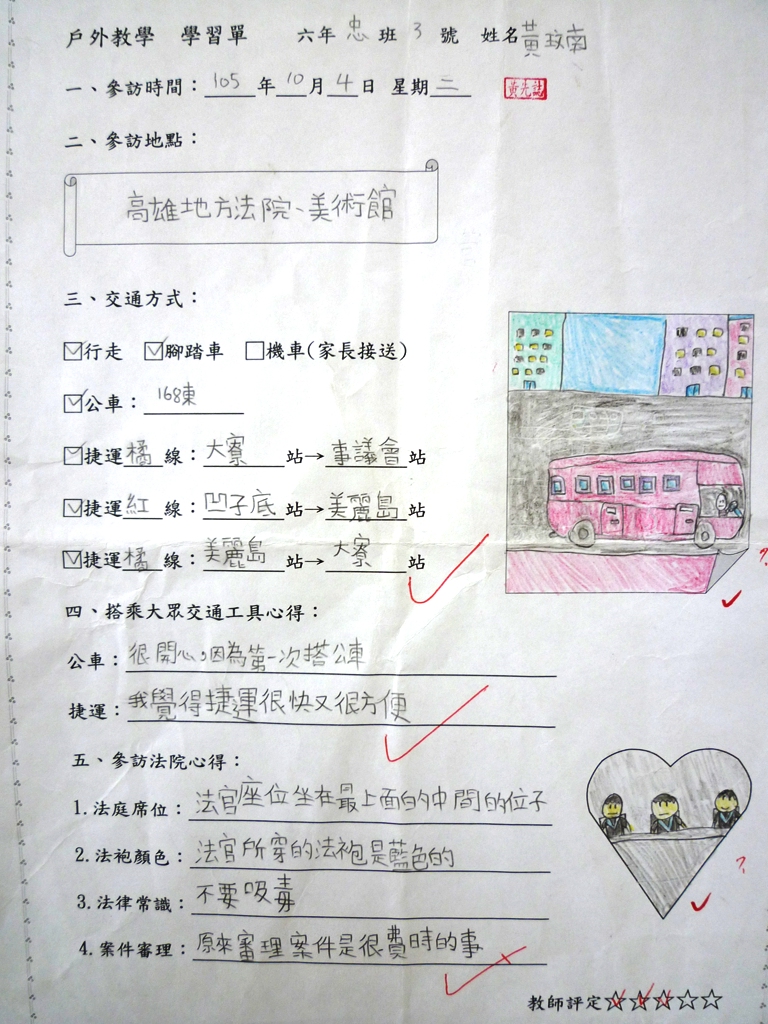 戶外教學 學習單 六年忠班3號 姓名黃玟南
一、參訪時間：105年10月4日 星期二
二、參訪地點：
高雄地方法院、美術館
三、交通方式：
行走 腳踏車 機車(家長接送)
公車：168東
捷運橘線：大寮站→事議會站
捷運紅線：凹子底站→美麗島站
捷運橘線：美麗島站→大寮站
四、搭乘大眾交通工具心得：
公車：很開心，因為第一次搭公車
捷運：我覺得捷運很快又很方便
五、參訪法院心得：
1.法庭席位：法官座位坐在最上面的中間的位子
2.法袍顏色：法官所穿的法袍是藍色的
3.法律常識：不要吸毒
4.案件審理：原來審理案件是很費時的事
教師評定☆☆☆☆☆